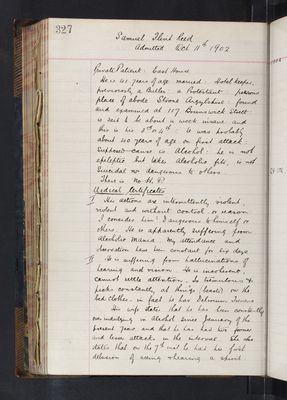 327
Samuel Flint Reed
Admitted Oct 11th 1902
Private Patient: East House
He is 41 years of age married. Hotel Keeper,
previously a Butler: a Protestant: previous
place of abode Strone Argyllshire: found
and examined at 117 Brunswick Street
is said to be about a week insane and
this is his 3rd or 4th: he was probably
about 40 years of age on first attack.
Supposed cause is Alcohol: he is not
epileptic but takes alcoholic fits, is not
Suicidal nor dangerous to others.
There is no H. P.
Medical Certificates
I His actions are intermittently violent,
violent and without control or reason
I consider him dangerous to himself &
others. He is apparently suffering from
Alcoholic Mania. My attendance and
observation have been constant for six days
II He is suffering from hallucinations of
hearing and vision. He is incoherent,
cannot settle attention. Is tremulous &
picks constantly at things (beasts) on the
bed clothes. in fact he has Delirium Tremens
His wife states that he has been constantly
over indulging in Alcohol since January of the
present year and that he has had two former
and lesser attacks in the interval. She also
states that on the 7th inst he had his first
delusion of seeing & hearing a spirit